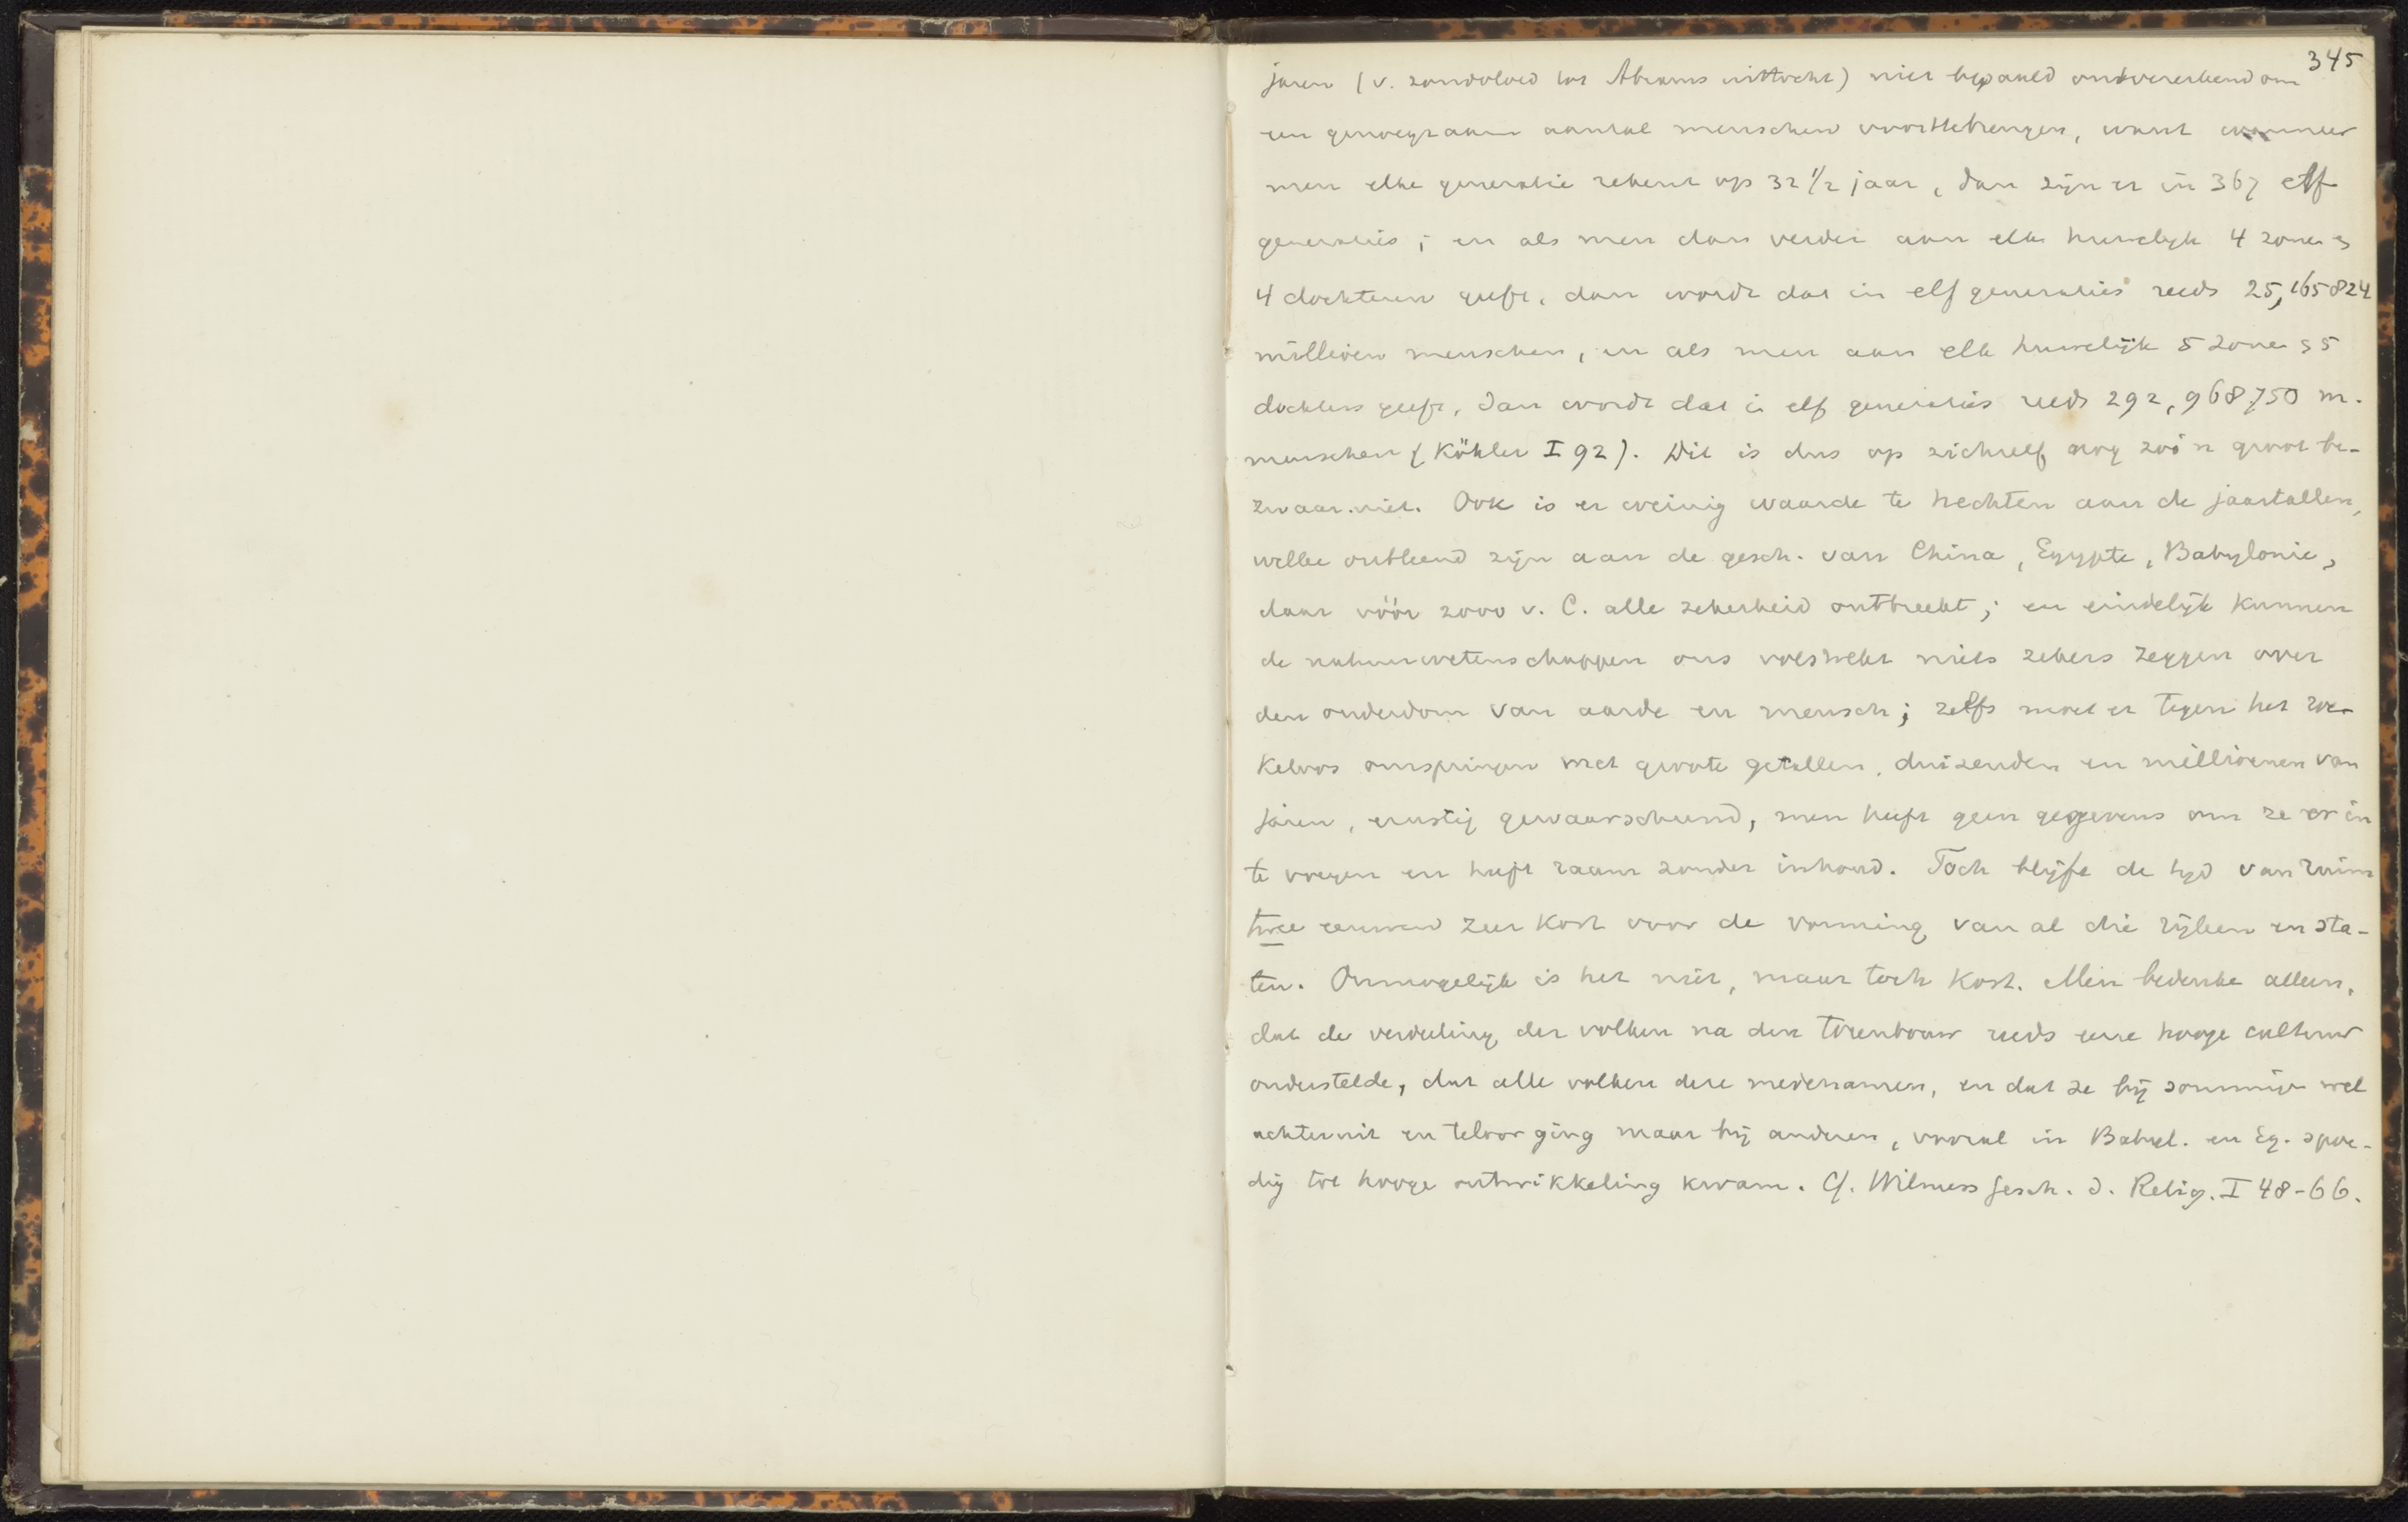 345
jaren (v. zondvloed tot Abrams uittocht) niet bepaald ontoereikend om
een genoegzaam aantal menschen voorttebrengen, want wanneer
men elke generatie rekent op 32 1/2 jaar, dan zijn er in 367 elf
generaties; en als men dan verder aan elk huwelijk 4 zonen en
4 dochteren geeft, dan wordt dat in elf generaties reeds 25,165824
millioen menschen, en als men aan elk huwelijk 5 zonen en 5
dochters geeft, dan wordt dat in elf generaties reeds 292,968750 m.
menschen (Köhler I 92). Dit is dus op zichzelf nog zoo'n groot be-
zwaar niet. Ook is er weinig waarde te hechten aan de jaartallen,
welke ontleend zijn aan de gesch. van China, Egypte, Babylonie,
daar vóór 2000 v. C. alle zekerheid ontbreekt; en eindelijk kunnen
de natuurwetenschappen ons volstrekt niets zekers zeggen over
den ouderdom van aarde en mensch; zelfs moet er tegen het roe-
keloos omspringen met groote getallen, duizenden en millioenen van
jaren, ernstig gewaarschuwd, men heeft geen gegevens om ze er in
te voegen en heeft raam zonder inhoud. Toch blijft de tijd van ruim
twee eeuwen zeer kort voor de vorming van al die rijken en sta-
ten. Onmogelijk is het niet, maar toch kort. Men bedenke alleen,
dat de verdeeling der volken na den torenbouw reeds eene hooge cultuur
onderstelde, dat alle volken deze medenamen, en dat ze bij sommige wel
achteruit en teloor ging maar bij anderen, vooral in Babyl. en Eg. spoe-
dig tot hooge ontwikkeling kwam. Cf. Wilmers Gesch. d. Relig. I 48-66.